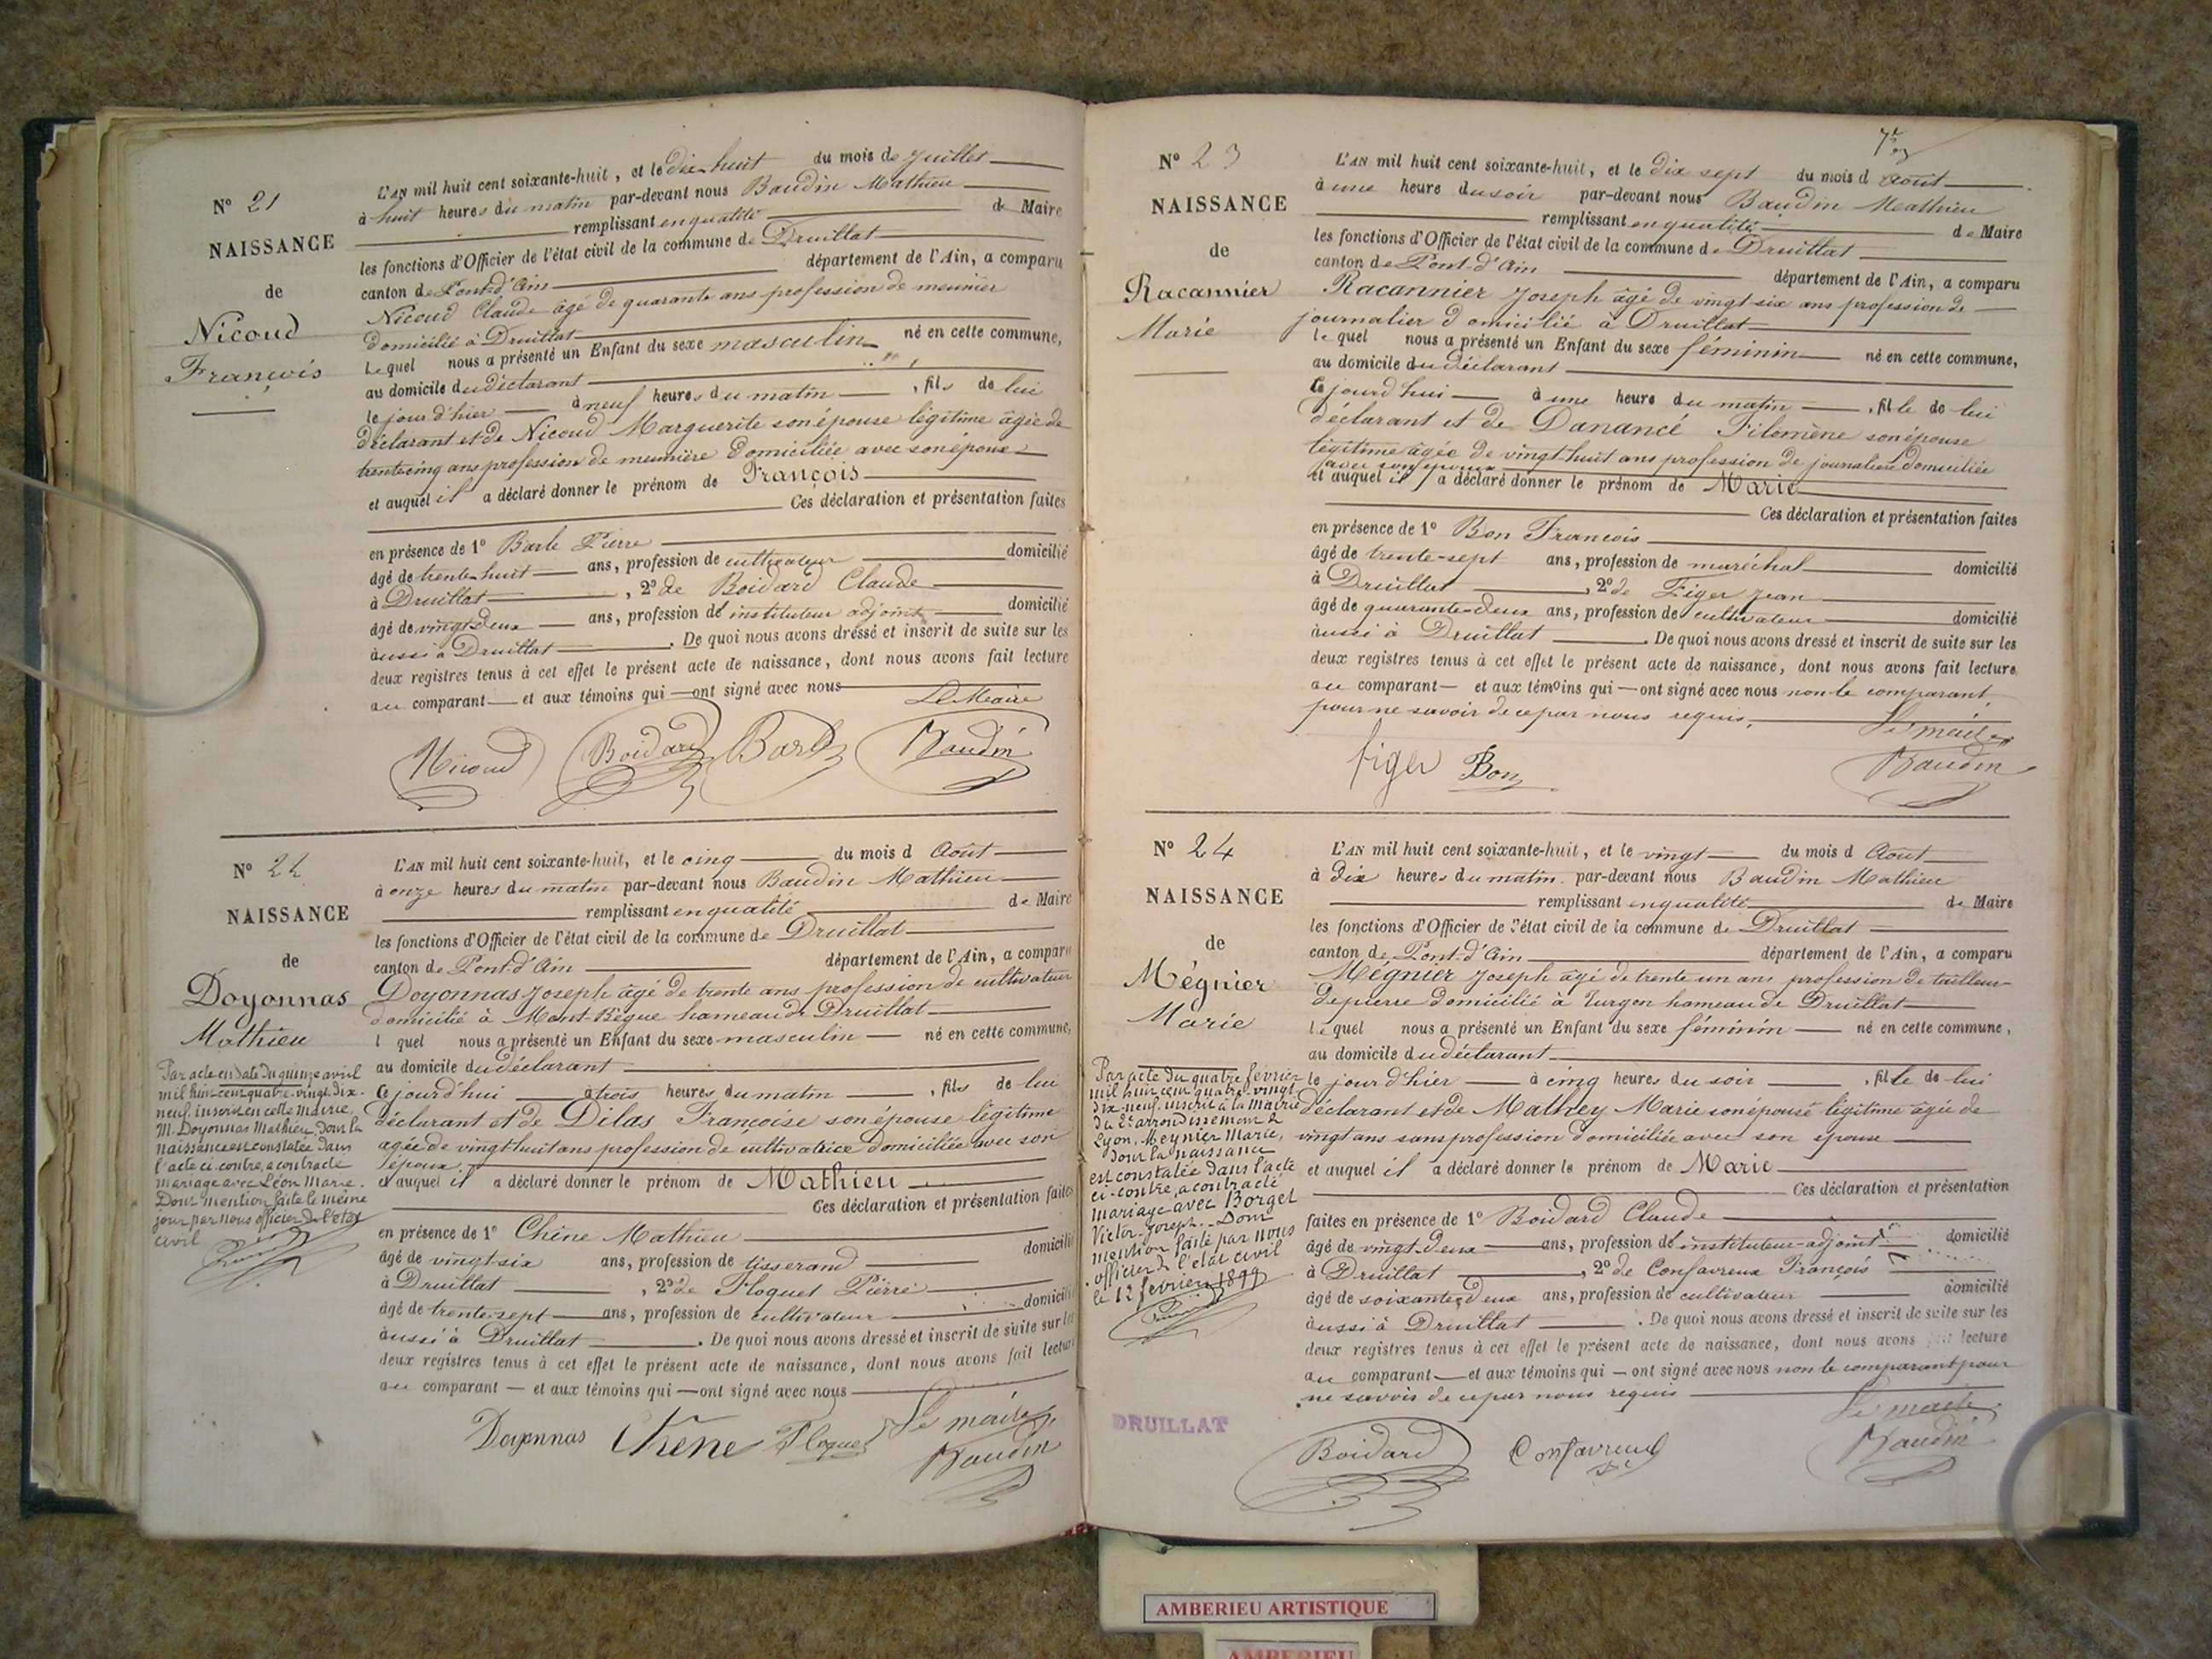 N° 21
NAISSANCE
de
Nicoud
François
L'AN mil huit cent soixante-huit, et le dix-huit du mois de Juillet
à huit heures du matin par-devant nous Baudin Mathieu
remplissant en qualité de Maire
les fonctions d'Officier de l'état civil de la commune de Druillat
canton de Pont-d'Ain département de l'Ain, a comparu
Nicoud Claude âgé de quarante ans profession de meunier
domicilié à Druillat
Lequel nous a présenté un Enfant du sexe masculin né en cette commune,
au domicile du déclarant
le jour d'hier à neuf heures du matin, fils de lui
déclarant et de Nicoud Marguerite son épouse légitime âgée de
trente cinq ans profession de meunière domiciliée avec son époux
et auquel il a déclaré donner le prénom de François
Ces déclaration et présentation faites
en présence de 1° Barle Pierre
âgé de trente-huit ans, profession de cultivateur domicilié
à Druillat, 2° de Boidard Claude
âgé de vingt-deux ans, profession de instituteur adjoint domicilié
aussi à Druillat. De quoi nous avons dressé et inscrit de suite sur les
deux registres tenus à cet effet le présent acte de naissance, dont nous avons fait lecture
au comparant et aux témoins qui ont signé avec nous
Le Maire
Nicoud Boidard Barle Baudin
N° 22
NAISSANCE
de
Doyonnas
Mathieu
Par acte en date du quinze avril
mil huit cent quatre-vingt-dix-
neuf, inscrit en cette Mairie,
M. Doyonnas Mathieu, dont la
naissance est constatée dans
l'acte ci-contre, a contracté
mariage avec Léon Marie.
Dont mention faite le même
jour par nous officier de l'état
civil
L'AN mil huit cent soixante-huit, et le cinq du mois d Août
à onze heures du matin par-devant nous Baudin Mathieu
remplissant en qualité de Maire
les fonctions d'Officier de l'état civil de la commune de Druillat
canton de Pont-d'Ain département de l'Ain, a comparu
Doyonnas Joseph âgé de trente ans profession de cultivateur
domicilié à Mont-Bègue hameau de Druillat
l quel nous a présenté un Enfant du sexe masculin né en cette commune,
au domicile du déclarant
Ce jourd'hui à trois heures du matin, fils de lui
déclarant et de Dilas Françoise son épouse légitime
agée de vingt-huit ans profession de cultivatrice domiciliée avec son
époux.
et auquel il a déclaré donner le prénom de Mathieu
Ces déclaration et présentation faites
en présence de 1° Chêne Mathieu
âgé de vingt-six ans, profession de tisserand domicilié
à Druillat, 2° de Floquet Pierre
âgé de trente-sept ans, profession de cultivateur domicilié
aussi à Druillat. De quoi nous avons dressé et inscrit de suite sur les
deux registres tenus à cet effet le présent acte de naissance, dont nous avons fait lecture
au comparant — et aux témoins qui — ont signé avec nous
Le maire
Doyonnas Chêne Floquet Baudin
N° 23
NAISSANCE
de
Racannier
Marie
L'AN mil huit cent soixante-huit, et le dix sept du mois d Août
à une heure du soir par-devant nous Baudin Mathieu
remplissant en qualité de Maire
les fonctions d'Officier de l'état civil de la commune de Druillat
canton de Pont-d'Ain département de l'Ain, a comparu
Racannier Joseph âgé de vingt-six ans profession de
journalier domicilié à Druillat
lequel nous a présenté un Enfant du sexe féminin né en cette commune,
au domicile du déclarant
Ce jourd'hui à une heure du matin, fille de lui
déclarant et de Danancé Filomène son épouse
légitime âgée de vingt-huit ans profession de journalière domiciliée
avec son époux
et auquel il a déclaré donner le prénom de Marie
Ces déclaration et présentation faites
en présence de 1° Bon François
âgé de trente-sept ans, profession de maréchal domicilié
à Druillat, 2° de Figer Jean
âgé de quarante-deux ans, profession de cultivateur domicilié
aussi à Druillat. De quoi nous avons dressé et inscrit de suite sur les
deux registres tenus à cet effet le présent acte de naissance, dont nous avons fait lecture
au comparant — et aux témoins qui — ont signé avec nous non le comparant,
pour ne savoir de ce par nous requis.
Le maire
figer Bon Baudin
N° 24
NAISSANCE
de
Mégnier
Marie
Par acte du quatre février
mil huit cent quatre-vingt-
dix-neuf, inscrit à la mairie
du 2e arrondissement de
Lyon, Meynier Marie,
dont la naissance
est constatée dans l'acte
ci-contre, a contracté
mariage avec Borget
Victor-Joseph. Dont
mention faite par nous
officier de l'état civil
le 12 février 1899
L'AN mil huit cent soixante-huit, et le vingt du mois d Août
à dix heures du matin par-devant nous Baudin Mathieu
remplissant en qualité de Maire
les fonctions d'Officier de l'état civil de la commune de Druillat
canton de Pont-d'Ain département de l'Ain, a comparu
Mégnier Joseph âgé de trente un ans profession de tailleur
de pierre domicilié à Turgon hameau de Druillat
lequel nous a présenté un Enfant du sexe féminin né en cette commune,
au domicile du déclarant
le jour d'hier à cinq heures du soir, fille de lui
déclarant et de Mathey Marie son épouse légitime âgée de
vingt ans sans profession domiciliée avec son époux
et auquel il a déclaré donner le prénom de Marie
Ces déclaration et présentation
faites en présence de 1° Boidard Claude
âgé de vingt-deux ans, profession de instituteur-adjoint domicilié
à Druillat, 2° de Confavreux François
âgé de soixante-deux ans, profession de cultivateur domicilié
aussi à Druillat. De quoi nous avons dressé et inscrit de suite sur les
deux registres tenus à cet effet le présent acte de naissance, dont nous avons fait lecture
au comparant — et aux témoins qui — ont signé avec nous non le comparant pour
ne savoir de ce par nous requis
Le maire
DRUILLAT
Boidard Confavreux Baudin
AMBERIEU ARTISTIQUE
AMBERIEU